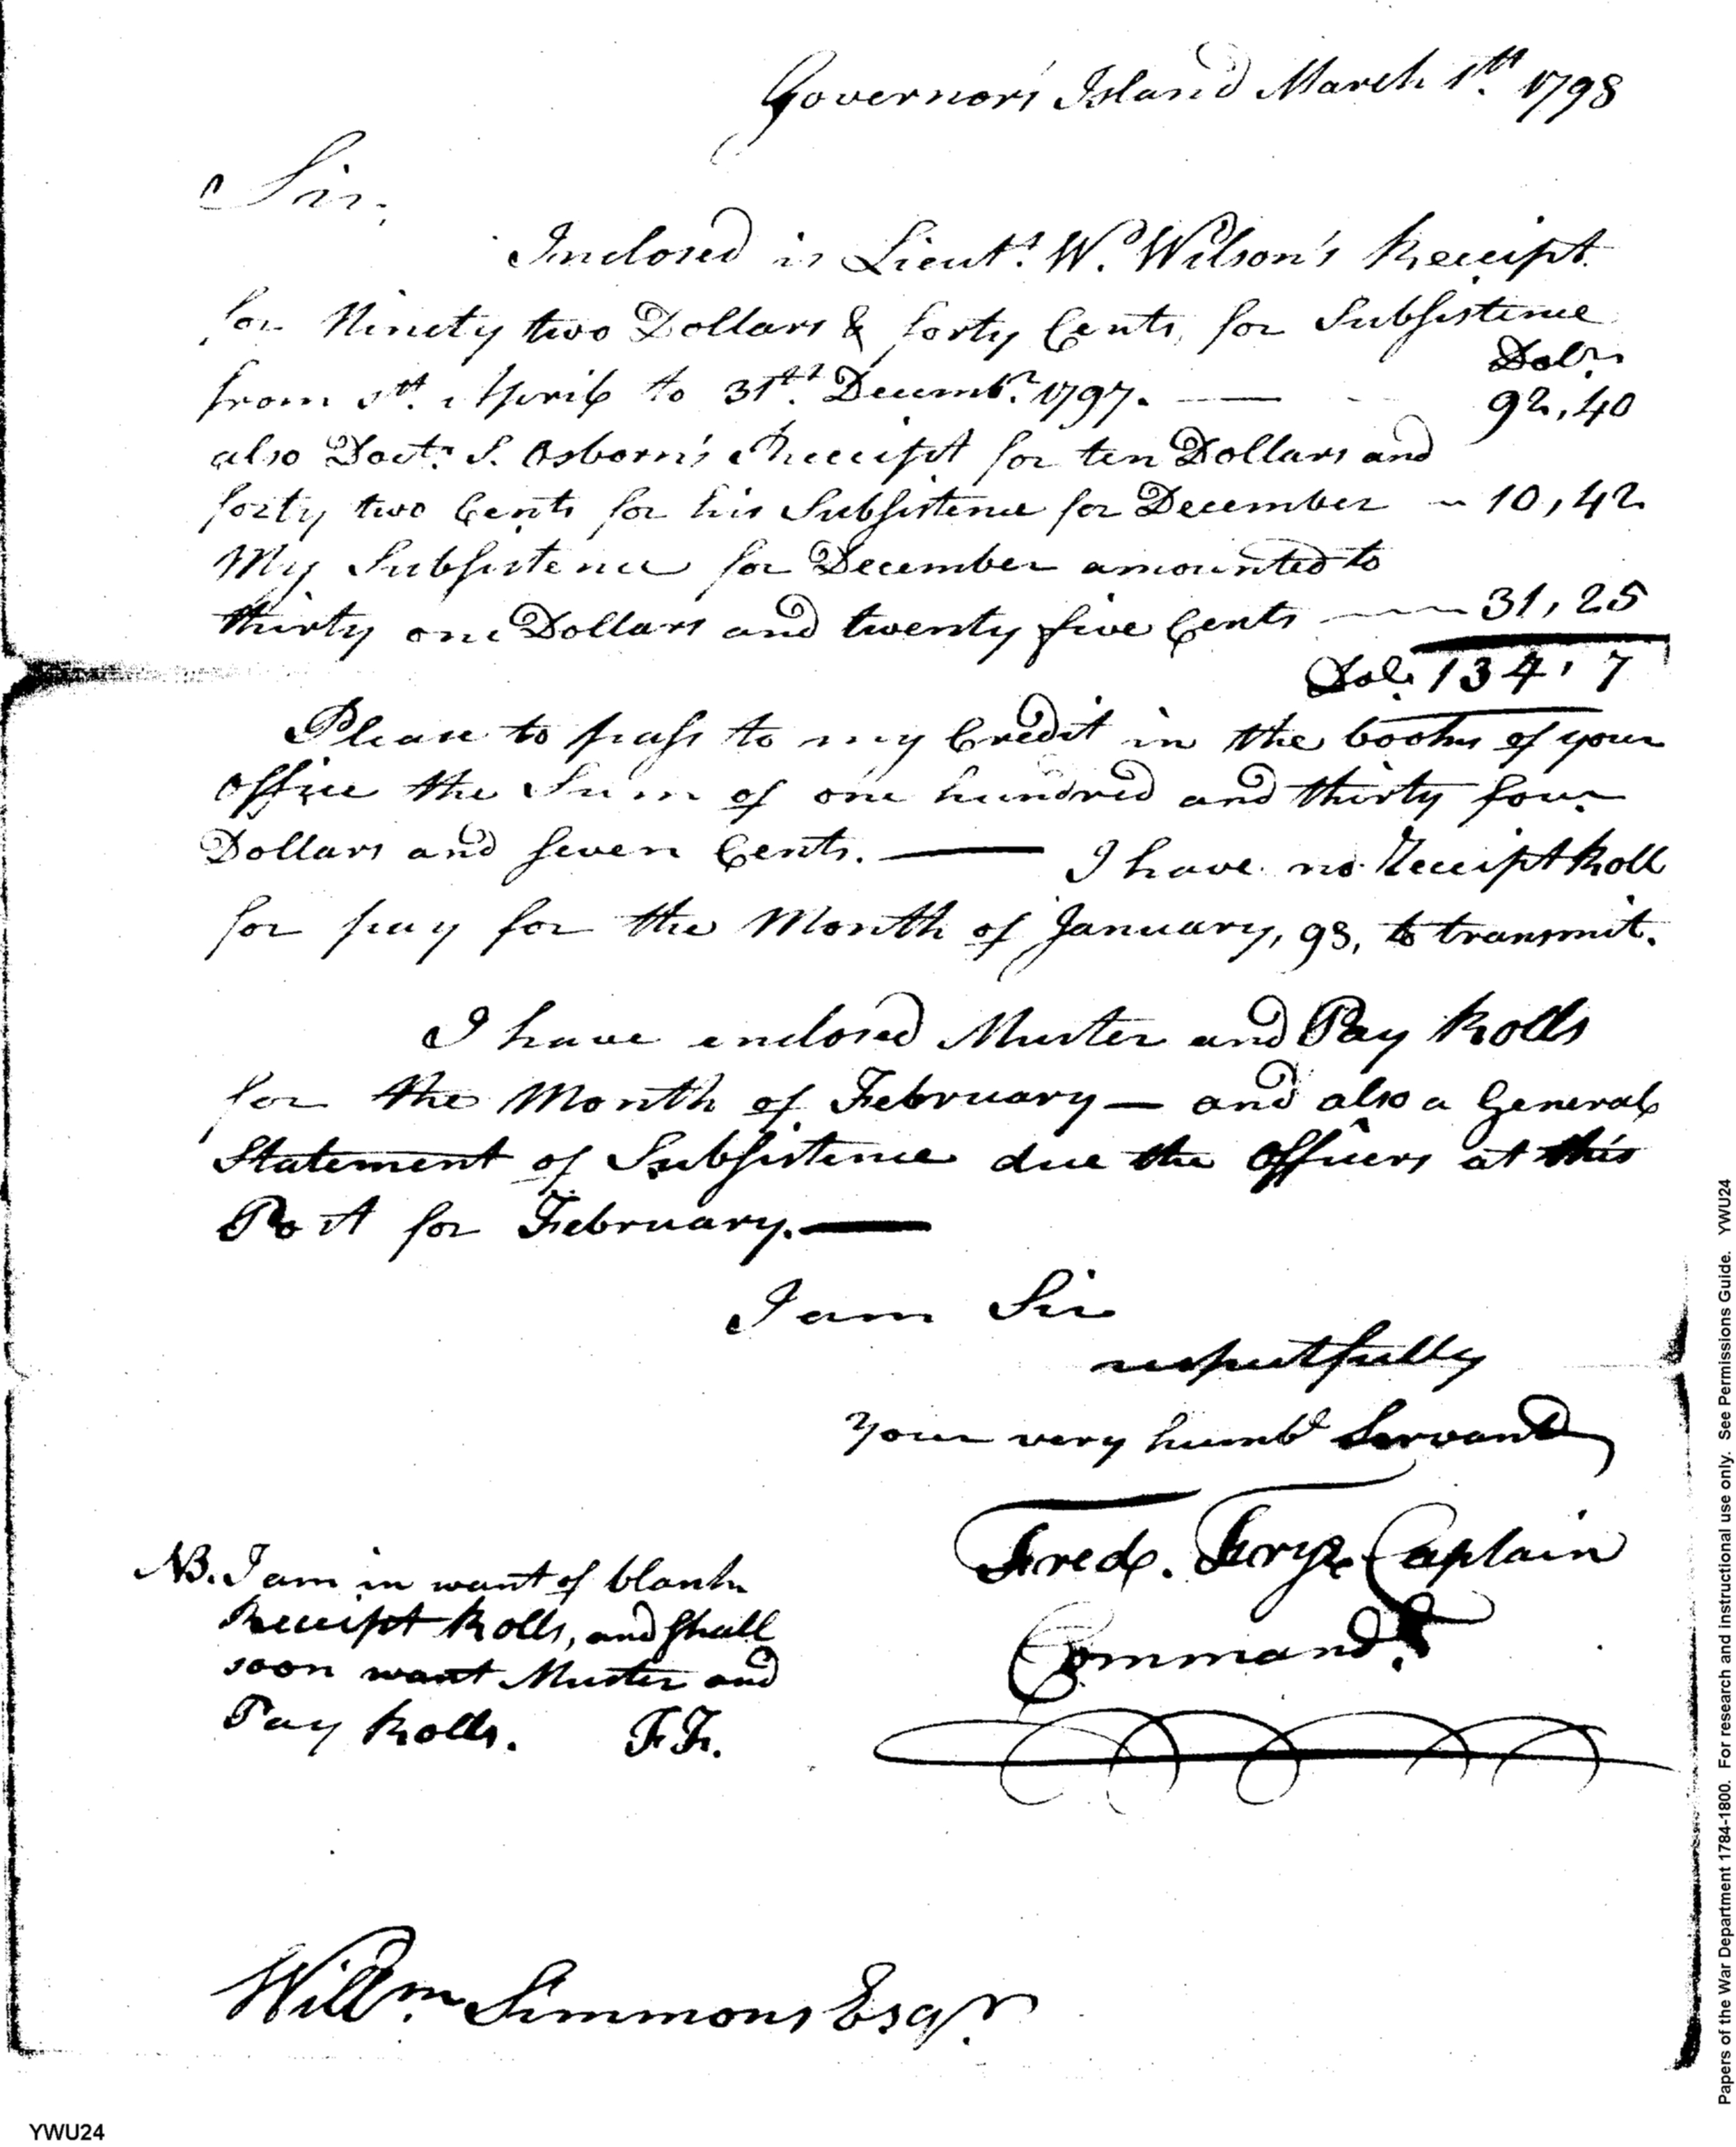 Governors Island March 1st. 1798
Sir,
Inclosed is Lieut. W. Wilson's Receipt
for Ninety two Dollars & forty Cents, for Subsistence
Dolrs.
from 1st. April to 31st. Decembr. 1797. — 92,40
also Doctr. S. Osborn's Receipt for ten Dollars and
forty two Cents for his Subsistence for December — 10,42
My Subsistence for December amounted to
thirty one Dollars and twenty five Cents — 31,25
Dols. 134,7
Please to pass to my Credit in the books of your
Office the Sum of one hundred and thirty four
Dollars and seven Cents. — I have no Receipt Roll
for pay for the Month of January, 98, to transmit.
I have enclosed Muster and Pay Rolls
for the Month of February — and also a General
Statement of Subsistence due the Officers at this
Post for February. —
I am Sir
respectfully
Your very humbl Servant
Fredk. Frye Captain
Commandt.
NB. I am in want of blank
Receipt Rolls, and shall
soon want Muster and
Pay Rolls. F.F.
Willm. Simmons Esqr.
YWU24
Papers of the War Department 1784-1800. For research and instructional use only. See Permissions Guide. YWU24